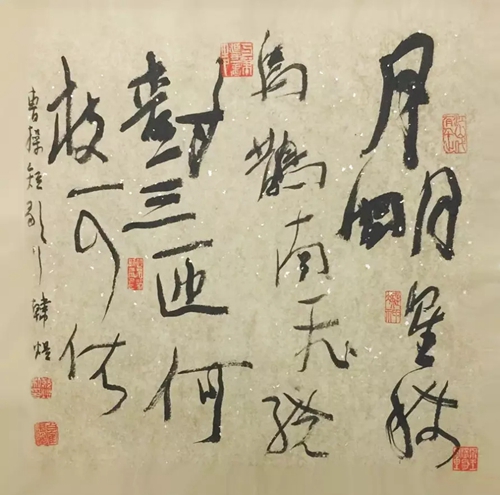 月明星稀
烏鵲南飛繞
樹三匝何
枝可依
曹操短歌行 韓